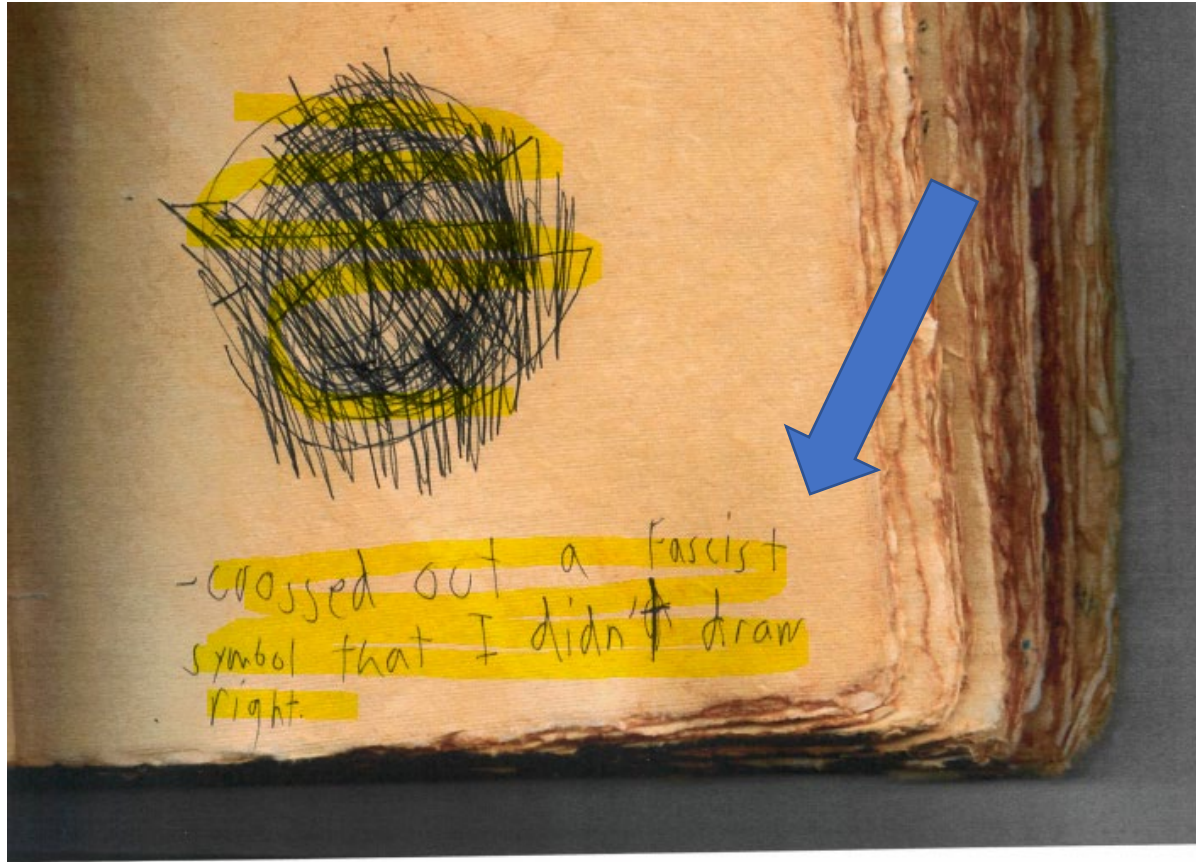 -crossed out a Fascist
symbol that I didn't draw
right.